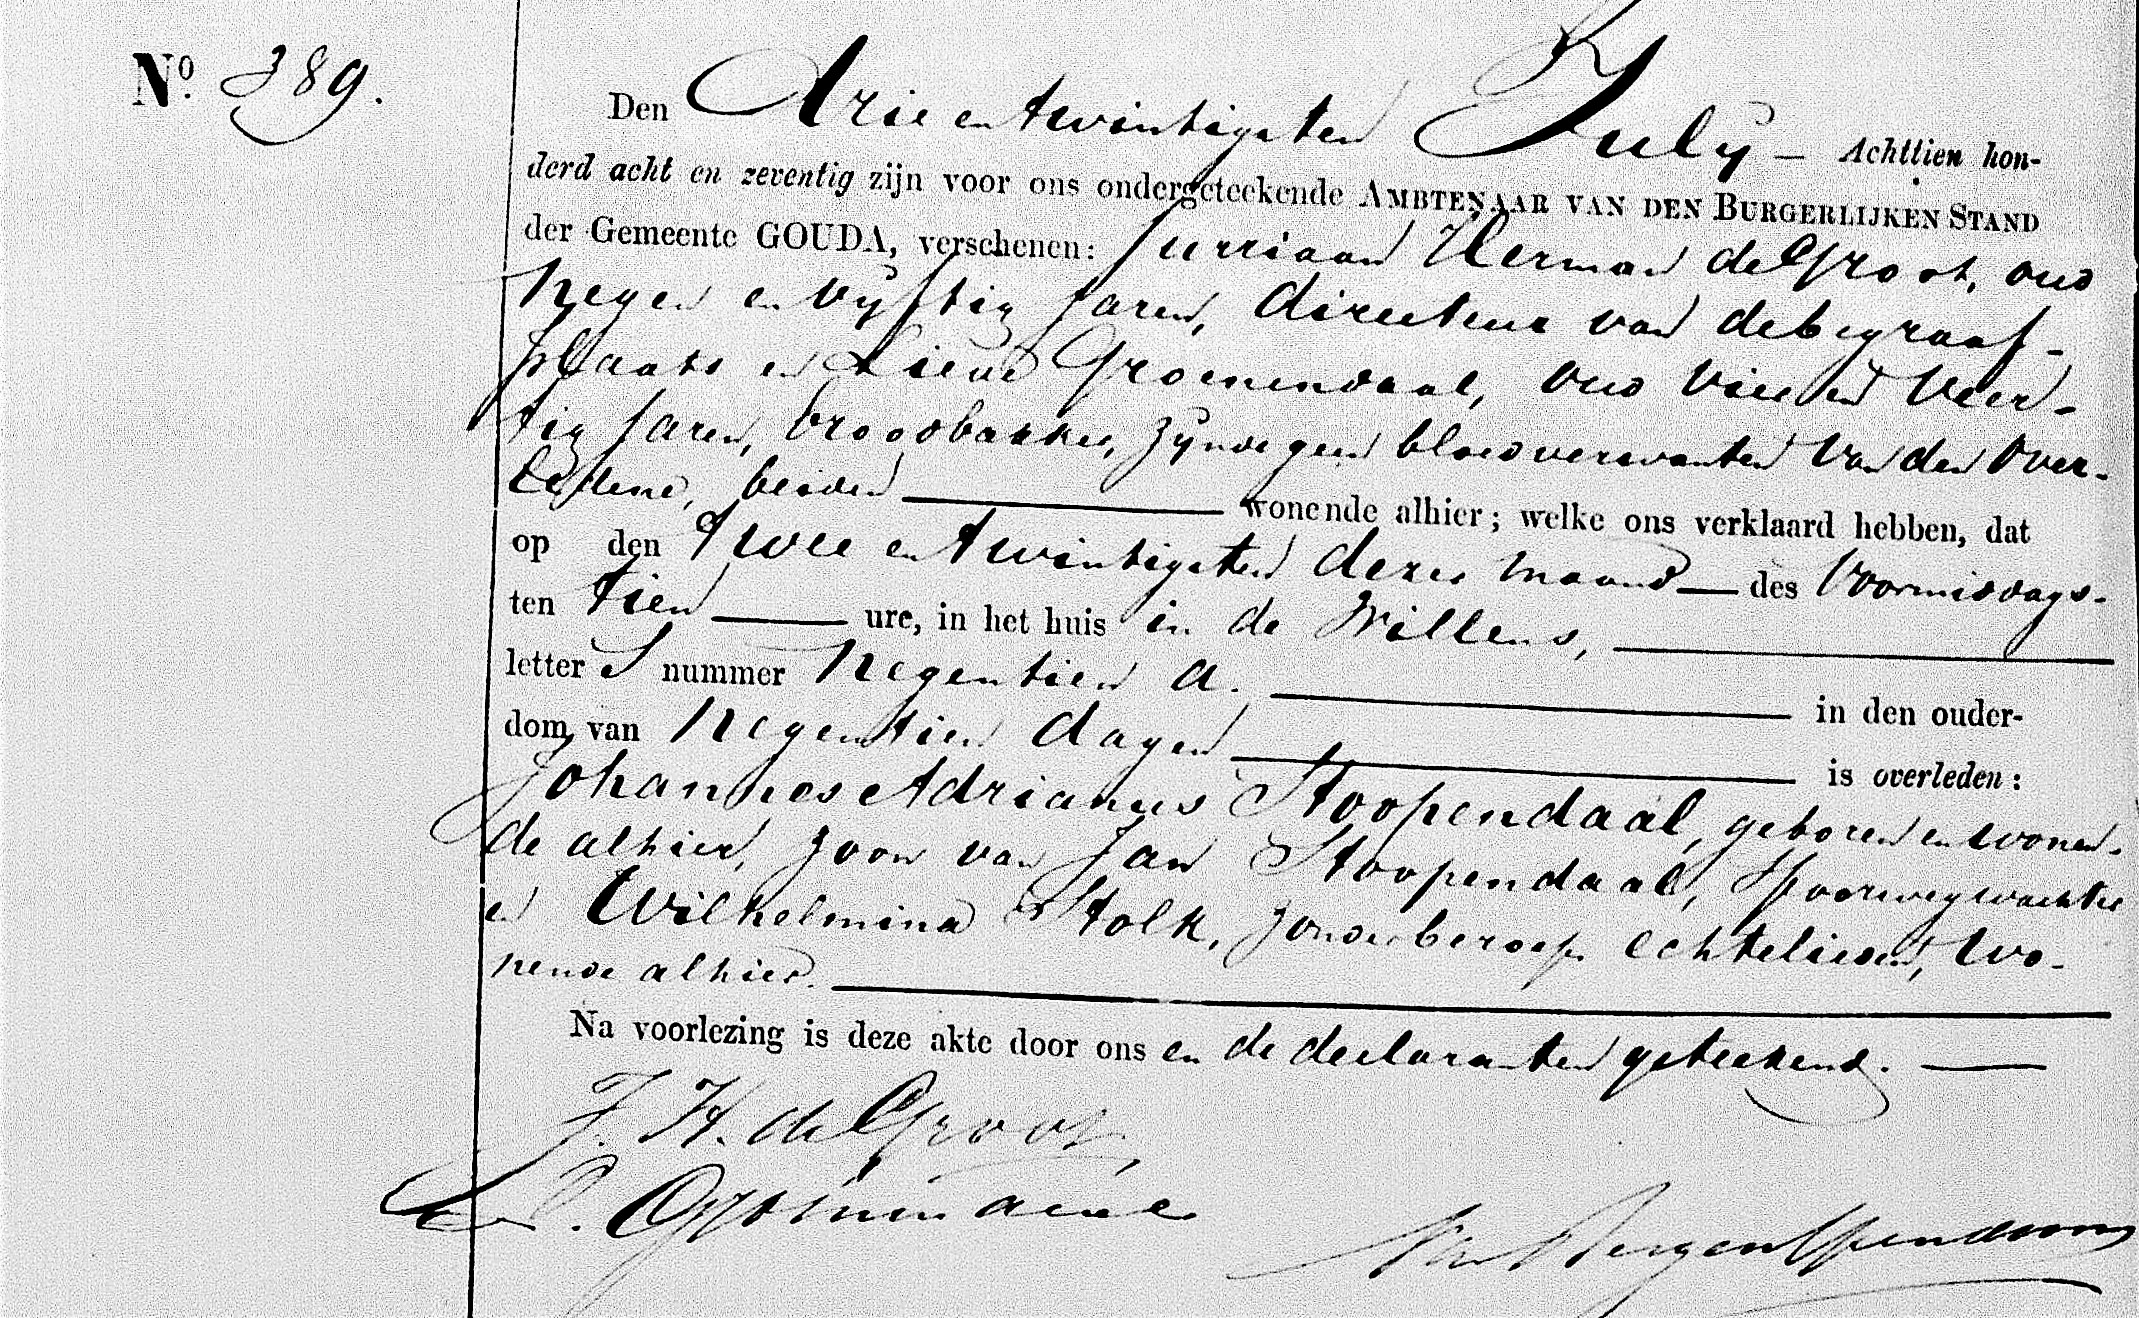 No. 389.
Den Drie en twintigsten July – Achttien hon-
derd acht en zeventig zijn voor ons ondergeteekende AMBTENAAR VAN DEN BURGERLIJKEN STAND
der Gemeente GOUDA, verschenen: Jurriaan Herman de Groot, oud
negen en vijftig jaren, directeur van de begraaf-
plaats en Lieve Groenendaal, oud vier en veer-
tig jaren, broodbakker, zijnde geen bloedverwanten van den over-
ledene, beiden wonende alhier; welke ons verklaard hebben, dat
op den twee en twintigsten dezer maand des voormiddags
ten tien ure, in het huis in de Willens,
letter S nummer negentien a. in den ouder-
dom van negentien dagen is overleden:
Johannes Adrianus Stoopendaal, geboren en wonen-
de alhier, zoon van Jan Stoopendaal, Spoorwegwachter
en Wilhelmina Stolk, zonder beroep, echtelieden, wo-
nende alhier.
Na voorlezing is deze akte door ons en de declaranten geteekend.
J. H. de Groot
L. Groenendaal
Van Bergen IJzendoorn